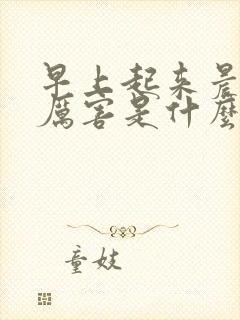 早上起来晨
厲害是什麼
童妓